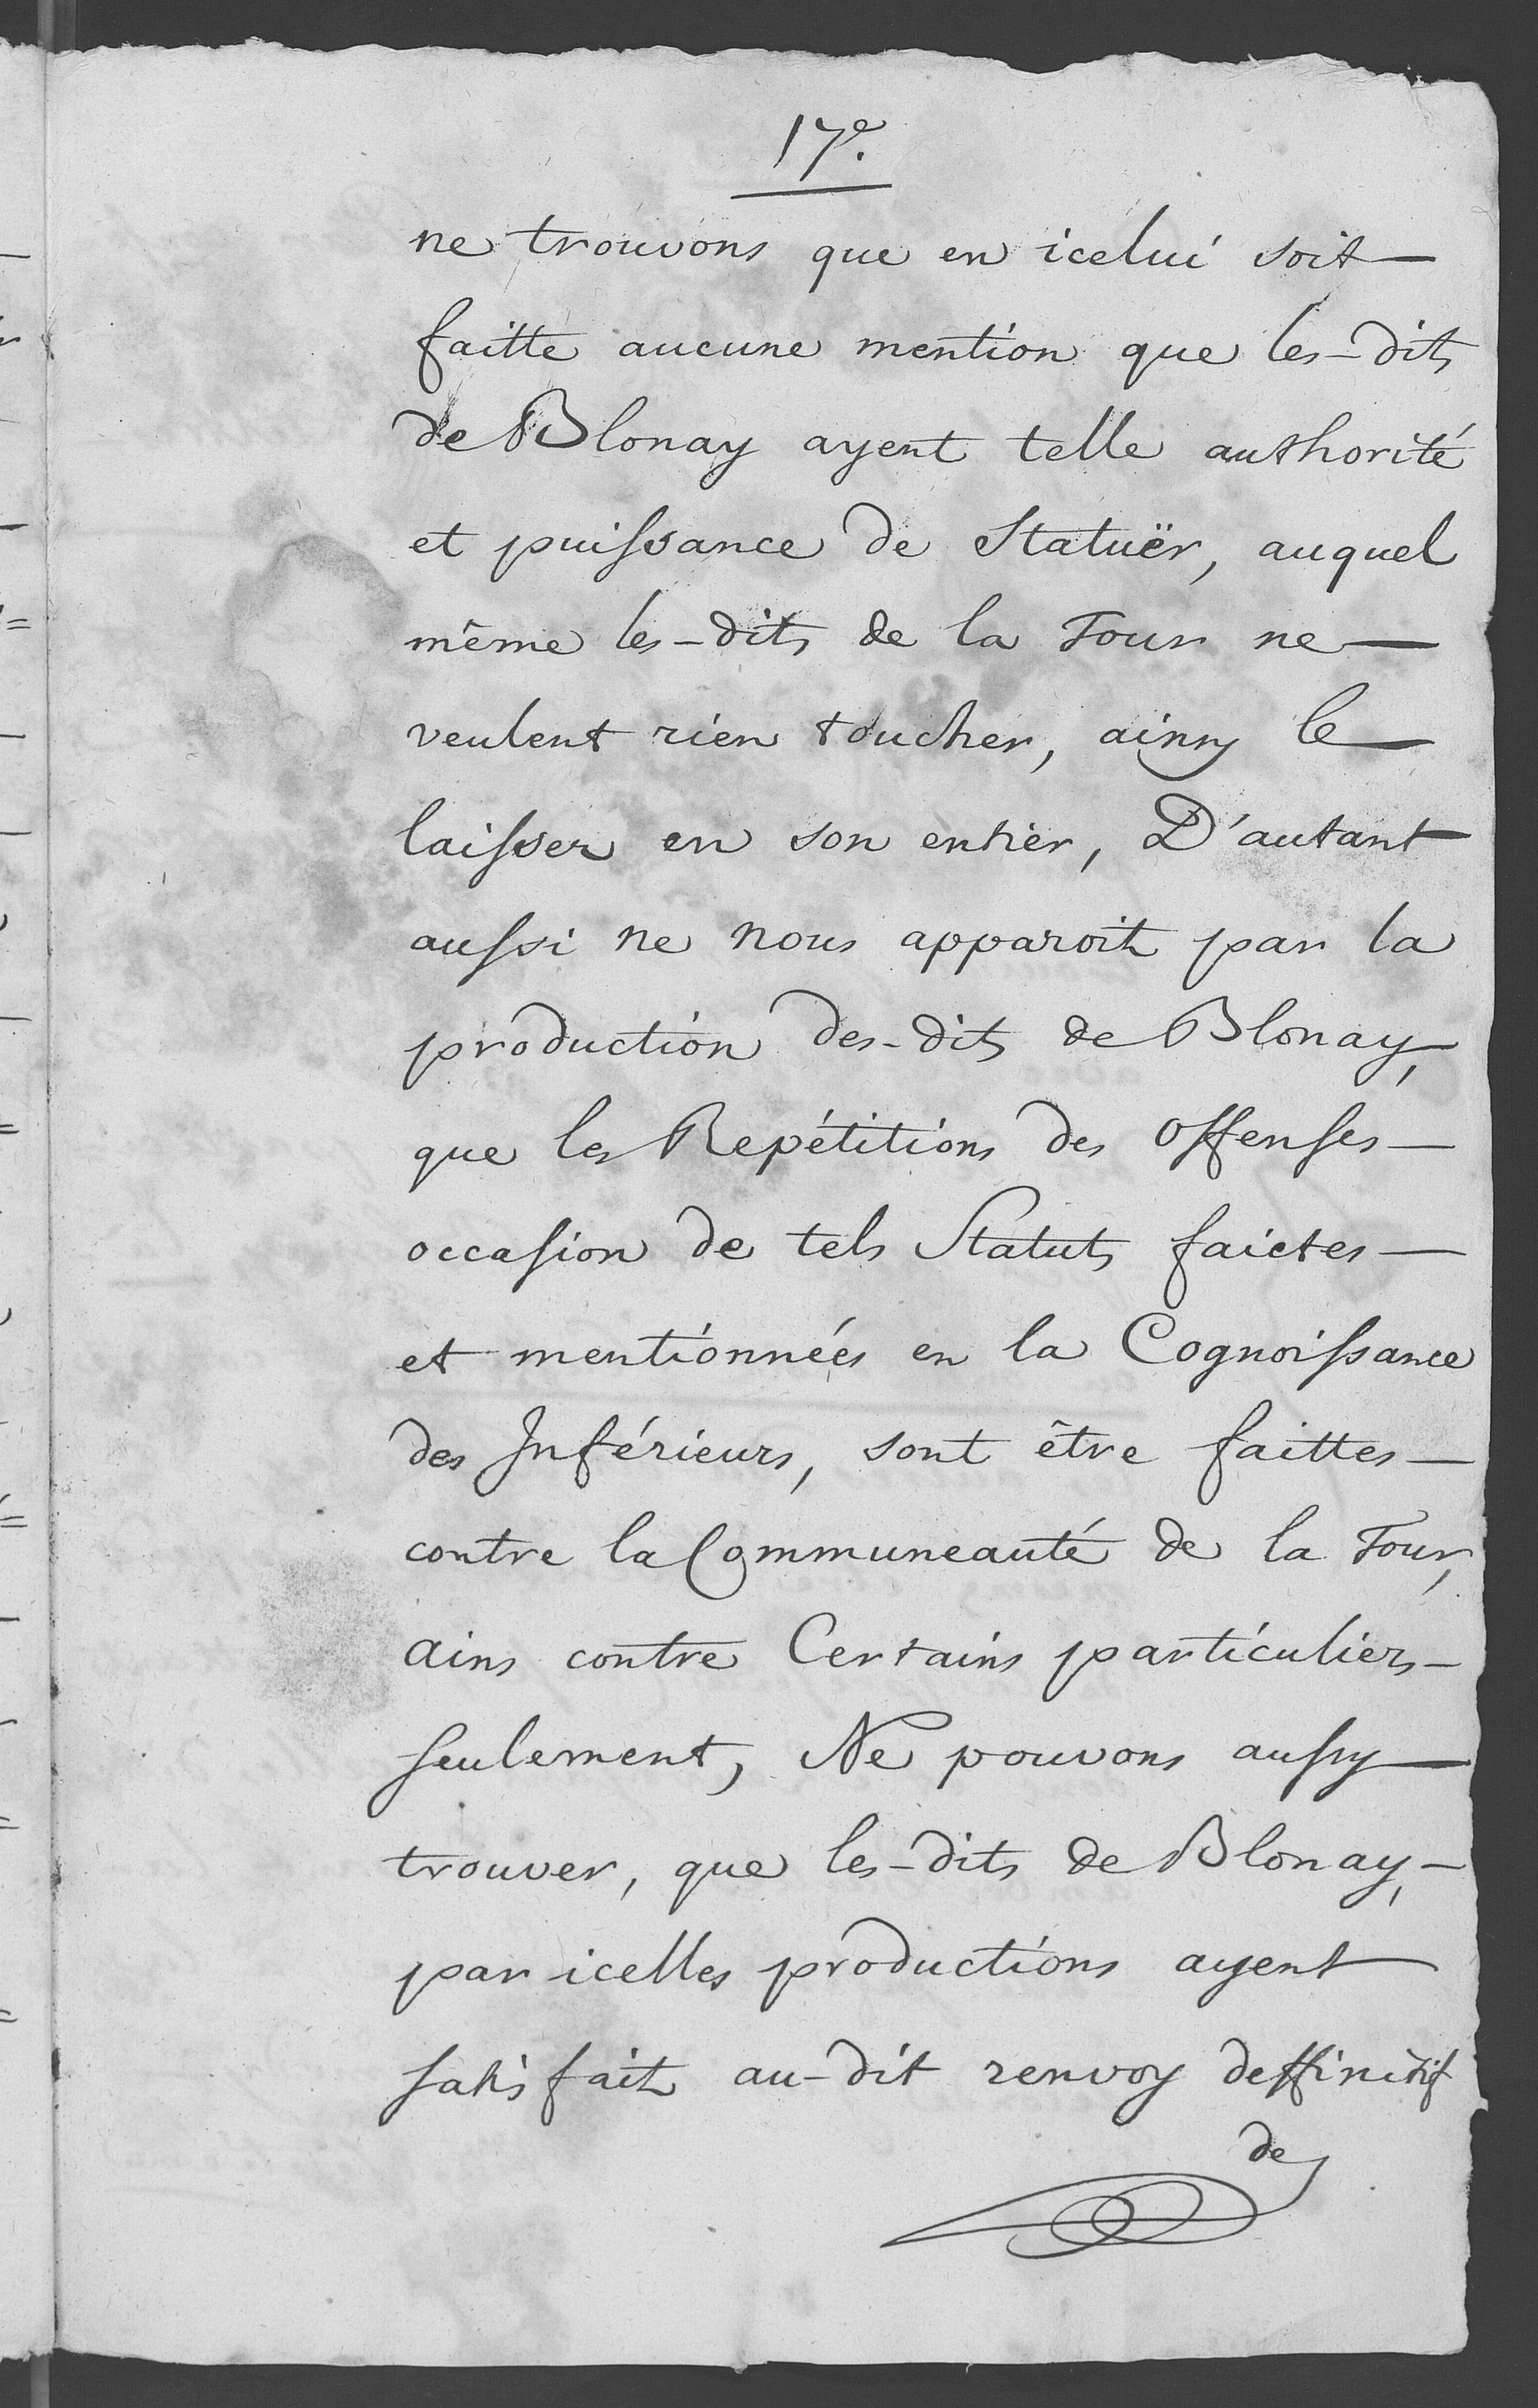 17e.
ne trouvons que en icelui soit —
faitte aucune mention que les-dits
de Blonay ayent telle authorité
et puissance de Statuër, auquel
même les-dits de la Tour ne —
veulent rien toucher, ainsy le —
laisser en son entier, D'autant
aussi ne nous apparoit par la
production des-dits de Blonay,
que les Repétitions des offenses —
occasion de tels Statuts faictes —
et mentionnées en la Cognoissance
des Inférieurs, sont être faittes —
contre la Communeauté de la Tour,
ains contre Certains particuliers —
seulement, Ne pouvons aussy —
trouver, que les-dits de Blonay, —
par icelles productions ayent
satisfait au-dit renvoy deffinitif
de